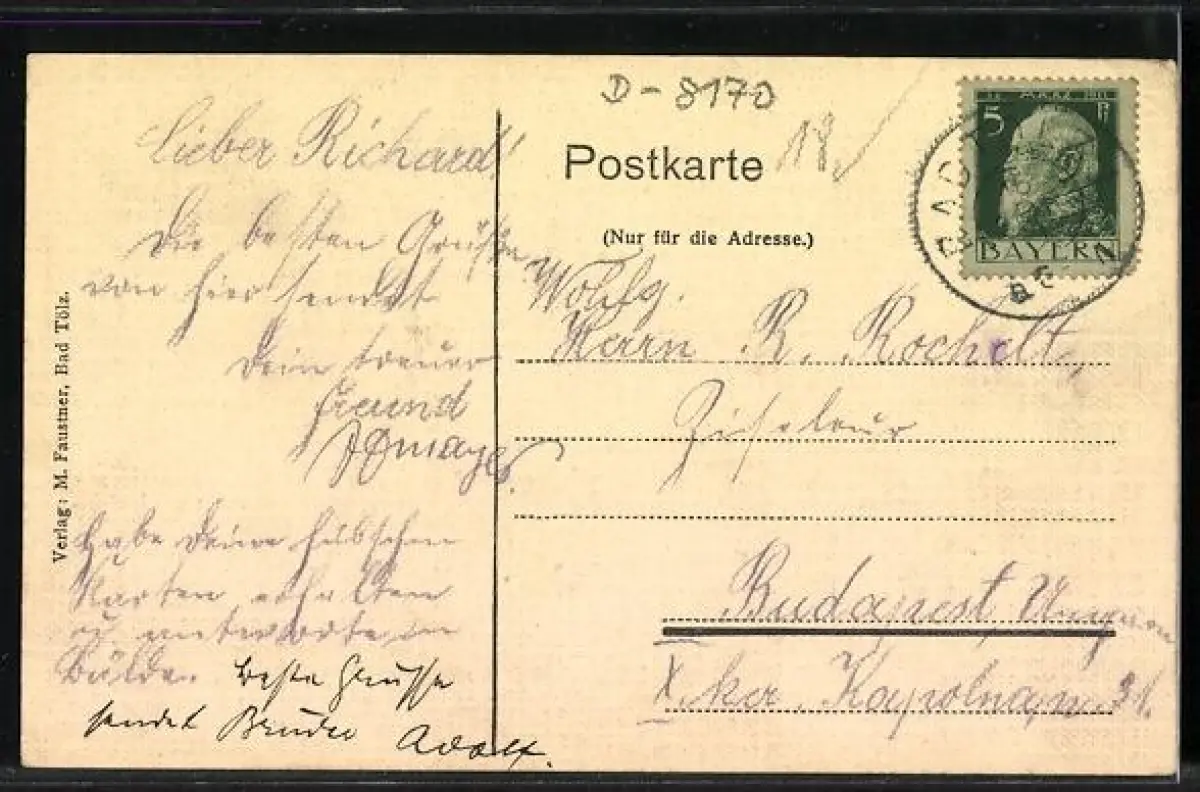 D-8170
Postkarte
18
(Nur für die Adresse.)
5
MÄRZ 1911
BAYERN
BAD
Lieber Richard!
Die besten Grüße
von hier sendet
Dein treuer
Freund
Habe Deine hübschen
Karten erhalten
u. antworte in
Bälde.
Beste Grüsse
sendet Bruder Adolf.
Wohlg.
Herrn R. Rochelt,
Ziseleur
Budapest, Ungarn
X. ker. Kapolna 31.
Verlag: M. Faustner, Bad Tölz.